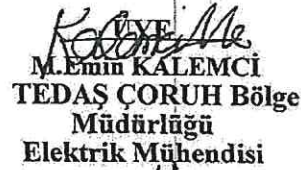 ÜYE
M.Emin KALEMCİ
TEDAŞ ÇORUH Bölge
Müdürlüğü
Elektrik Mühendisi